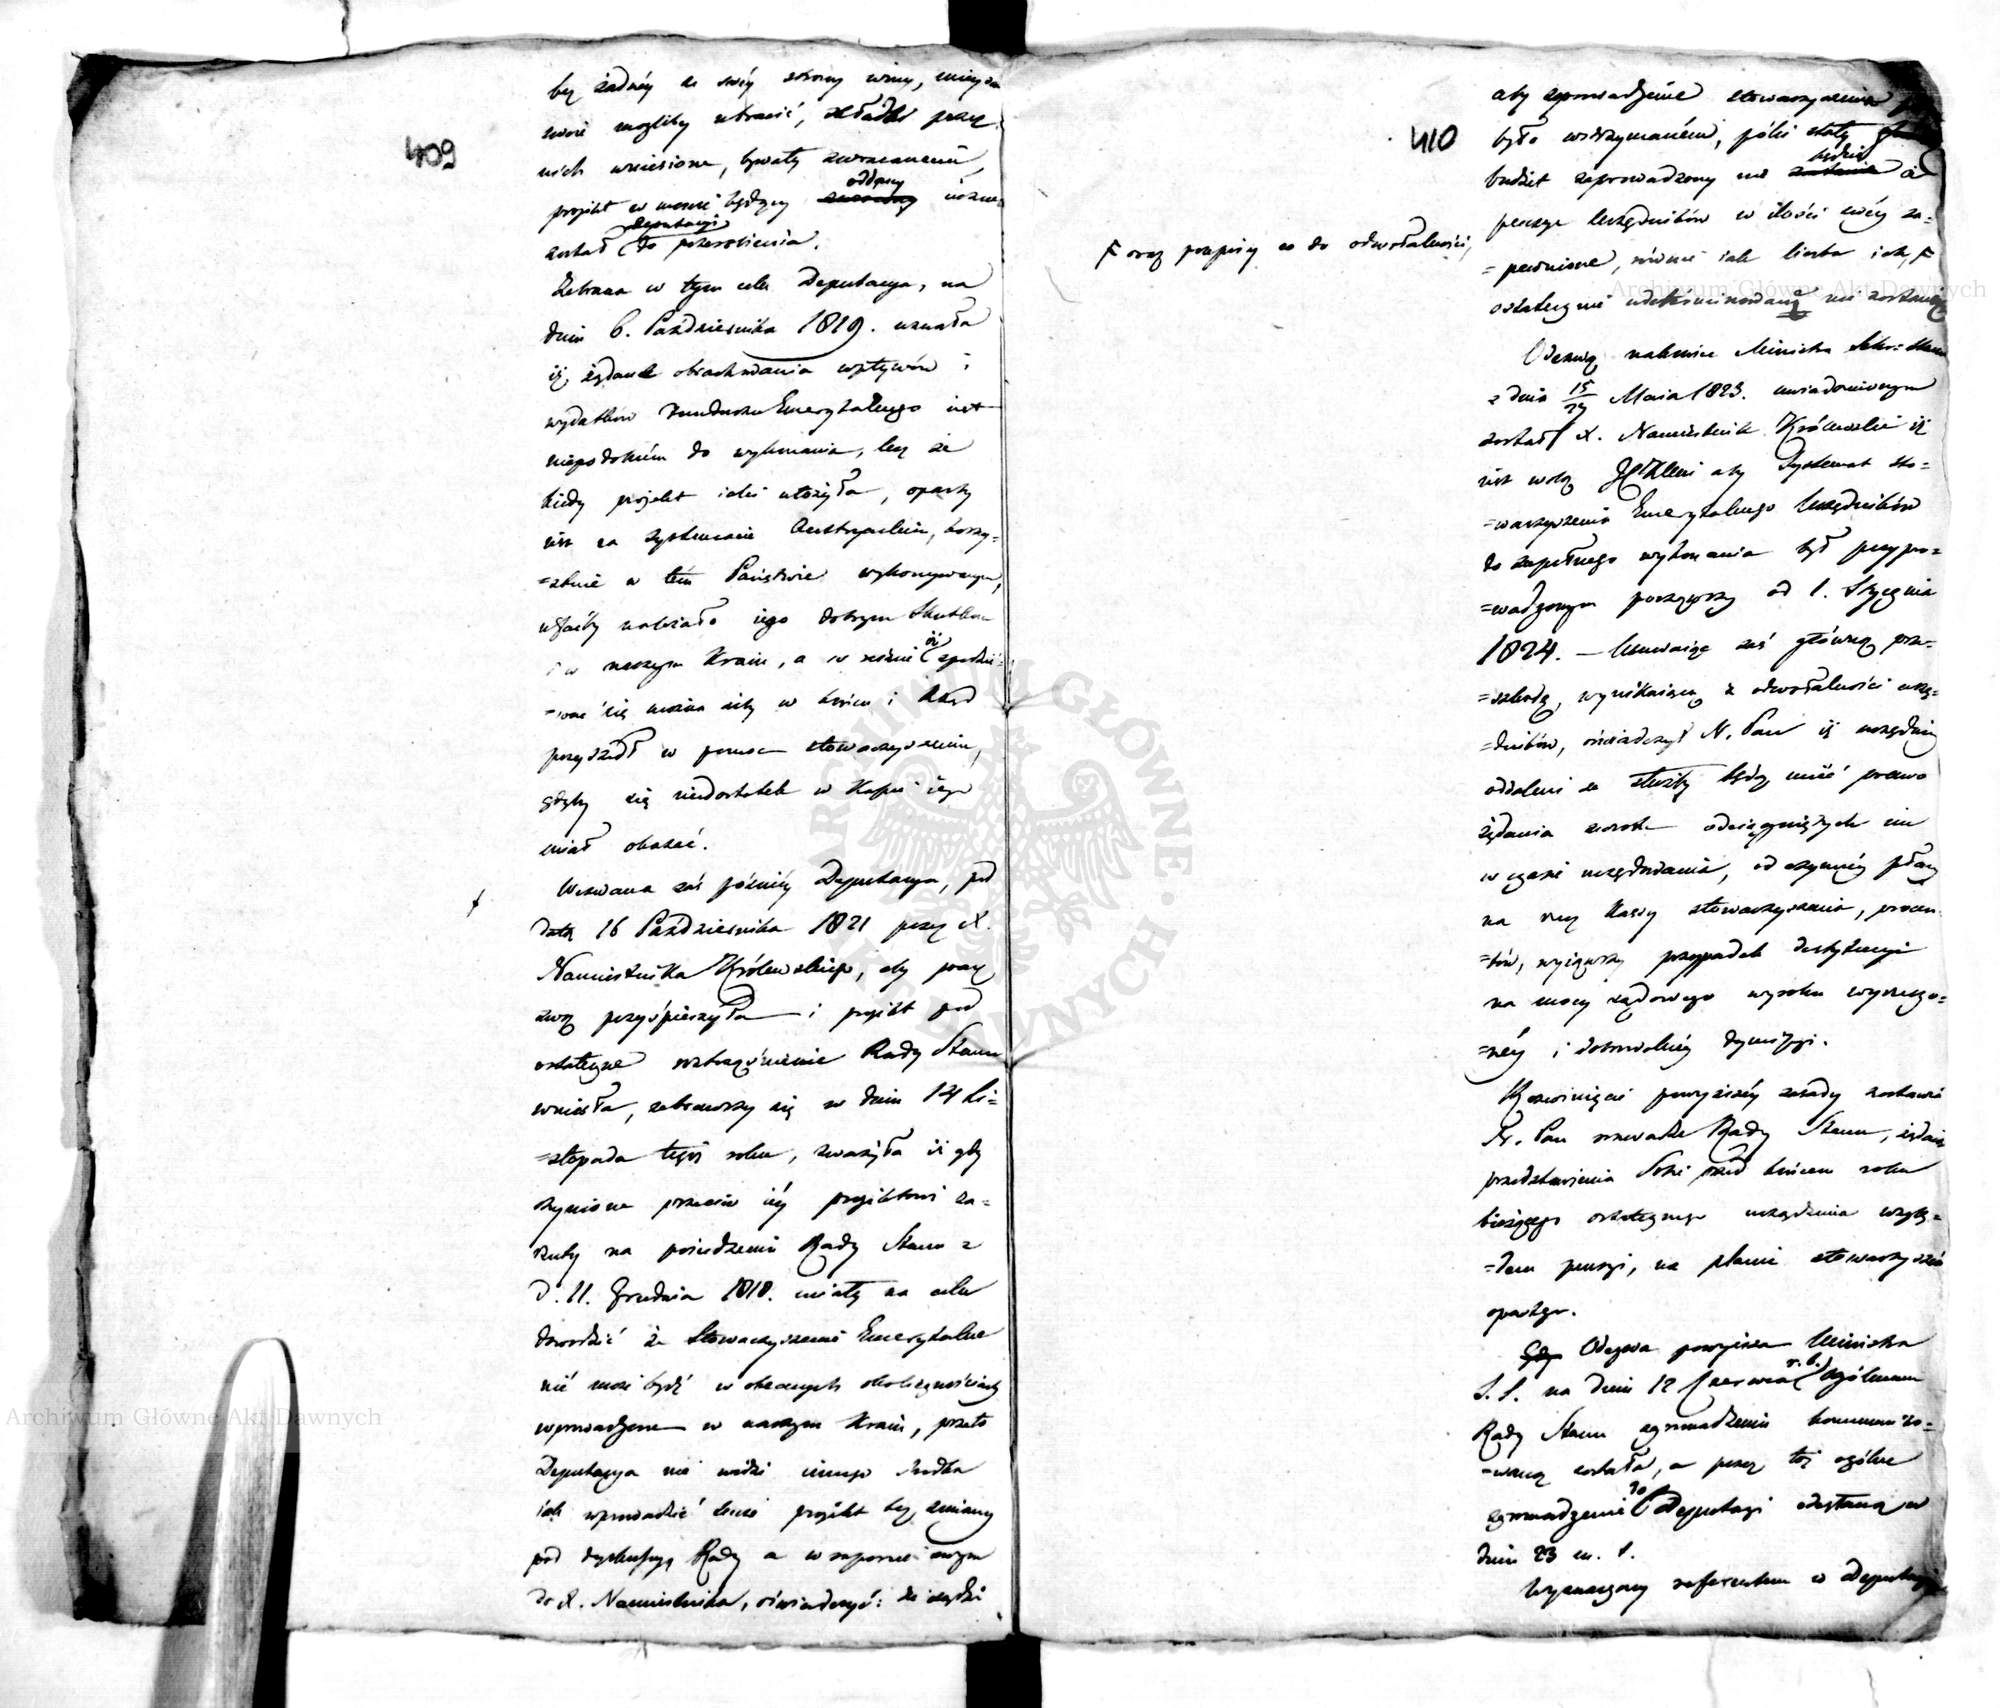 409
bez żadnéy ze swéy strony winy, mieysca
swoie mogliby utracić, składki przez
nich wniesione, bywały zwracanemi,
projekt w mowie będący oddany
został Deputacyi do przerobienia.
Zebrana w tym celu Deputacya, na
dniu 6. Października 1819. uznała
iż żądane obrachowania wpływów i
wydatków Funduszu Emerytalnego iest
niepodobném do wykonania, lecz że
kiedy projekt iaki ułożyła, oparty
iest na systemacie Austryackim, korzy=
=stnie w tém Państwie wykonywanym,
ufaćby należało iego dobrym skutkom
i w naszym Kraiu, a w
=wać się można aby w końcu i Rząd
przyszedł w pomoc stowarzyszeniu,
gdyby się niedostatek w Kassie iego
miał okazać.
Wezwana zaś późniéy Deputacya, pod
datą 16 Października 1821 przez X.
Namiestnika Królewskiego, aby pracę
swą przyśpieszyła i projekt pod
ostateczne roztrząśnienie Rady Stanu
wniosła, zebrawszy się w dniu 14 Li=
=stopada tegoż roku, zważyła iż gdy
czynione przeciw iéy projektowi za=
rzuty na posiedzeniu Rady Stanu z
d. 11. Grudnia 1818. miały na celu
dowodzić że Stowarzyszenie Emerytalne
nie może bydź w obecnych okolicznościach
wprowadzone w naszym Kraiu, przeto
Deputacya nie widzi innego środka
iak wprowadzić tenże projekt bez zmiany
pod dyskussyą Rady a w raporcie swym
do X. Namiestnika, oświadczyć: że ieżeli
410
aby zaprowadzenie stowarzyszenia
było wstrzymaném, póki stały
budżet zaprowadzony nie będzie a
pensye Urzędników w ilości swéy za=
=pewnione, równie iak liczba ich, F
F oraz przepisy co do odwołalności,
ostatecznie udeterminowaną nie zostaną
Odezwą nakoniec Ministra Sekr: Stanu
z dnia 15/27 Maia 1823. uwiadomionym
został X. Namiestnik Królewski iż
iest wolą J. C. K. Mci aby Systemat sto=
=warzyszenia Emerytalnego Urzędników
do zupełnego wykonania był przypro=
=wadzonym począwszy od 1. Stycznia
1824. — Usuwaiąc zaś główną prze=
=szkodę, wynikaiącą z odwołalności urzę=
=dników, oświadczył N. Pan iż urzędnicy
oddaleni ze służby będą mieć prawo
żądania zwrotu odciągniętych im
w czasie urzędowania, od czynnéy płacy
na rzecz Kassy stowarzyszenia, procen=
=tów, wyiąwszy przypadek destytucyi
na mocy sądowego wyroku wyrzeczo=
=néy i dobrowolnéy dymissyi.
Rozwinięcie powyższéy zasady zostawił
N. Pan uwadze Rady Stanu, żądaiąc
przedstawienia Sobie przed końcem roku
bieżącego ostatecznego urządzenia wzglę=
=dem pensyi, na planie stowarzyszeń
opartego.
Odezwa powyższa Ministra
S. S. na dniu 12 Czerwca r. b. Ogólnemu
Rady Stanu zgromadzeniu kommuniko=
=waną została, a przez toż ogólne
zgromadzenie do Deputacyi odesłaną w
dniu 23 m. b.
Wyznaczony referentem w Deputacyi